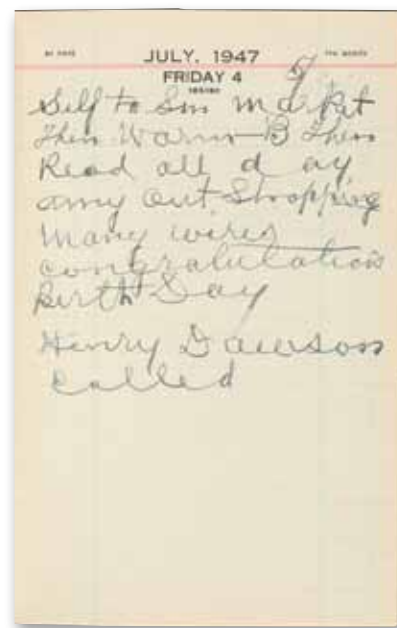 JULY, 1947
FRIDAY 4 5
Self to Sm market
Then Warm B Then
Read all day
amy out Shopping
many wires
congratulations
Birth Day
Henry Dawson
called